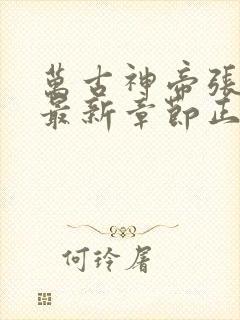 萬古神帝張
最新章節正
何玲屠